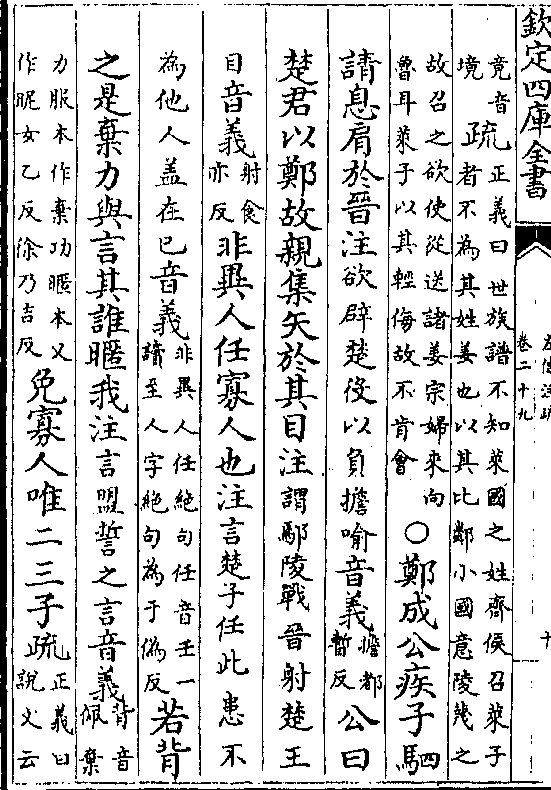 欽定四庫全書
卷二十九
十
竟音
境
疏
正義曰世族譜不知萊國之姓齊侯召萊子
者不為其姓姜也以其比鄰小國意陵蔑之
故召之欲使從送諸姜宗婦來向
魯耳萊子以其輕侮故不肯會
○鄭成公疾子駟
請息肩於晉注欲辟楚役以負擔喻音義
擔都
暫反
公曰
楚君以鄭故親集矢於其目注謂鄢陵戰晉射楚王
目音義
射食
亦反
非異人任寡人也注言楚子任此患不
為他人盖在已音義
非異人任絶句任音壬一
讀至人字絶句為于偽反
若背
之是棄力與言其誰暱我注言盟誓之言音義
背音
佩棄
力服本作棄功暱本又
作昵女乙反徐乃吉反
免寡人唯二三子疏
正義曰
說文云